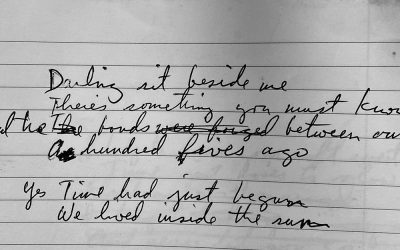 Darling sit beside me
There's something you must know
the bonds were forged between our
A hundred lives ago
Yes Time had just begun
We lived inside the sun